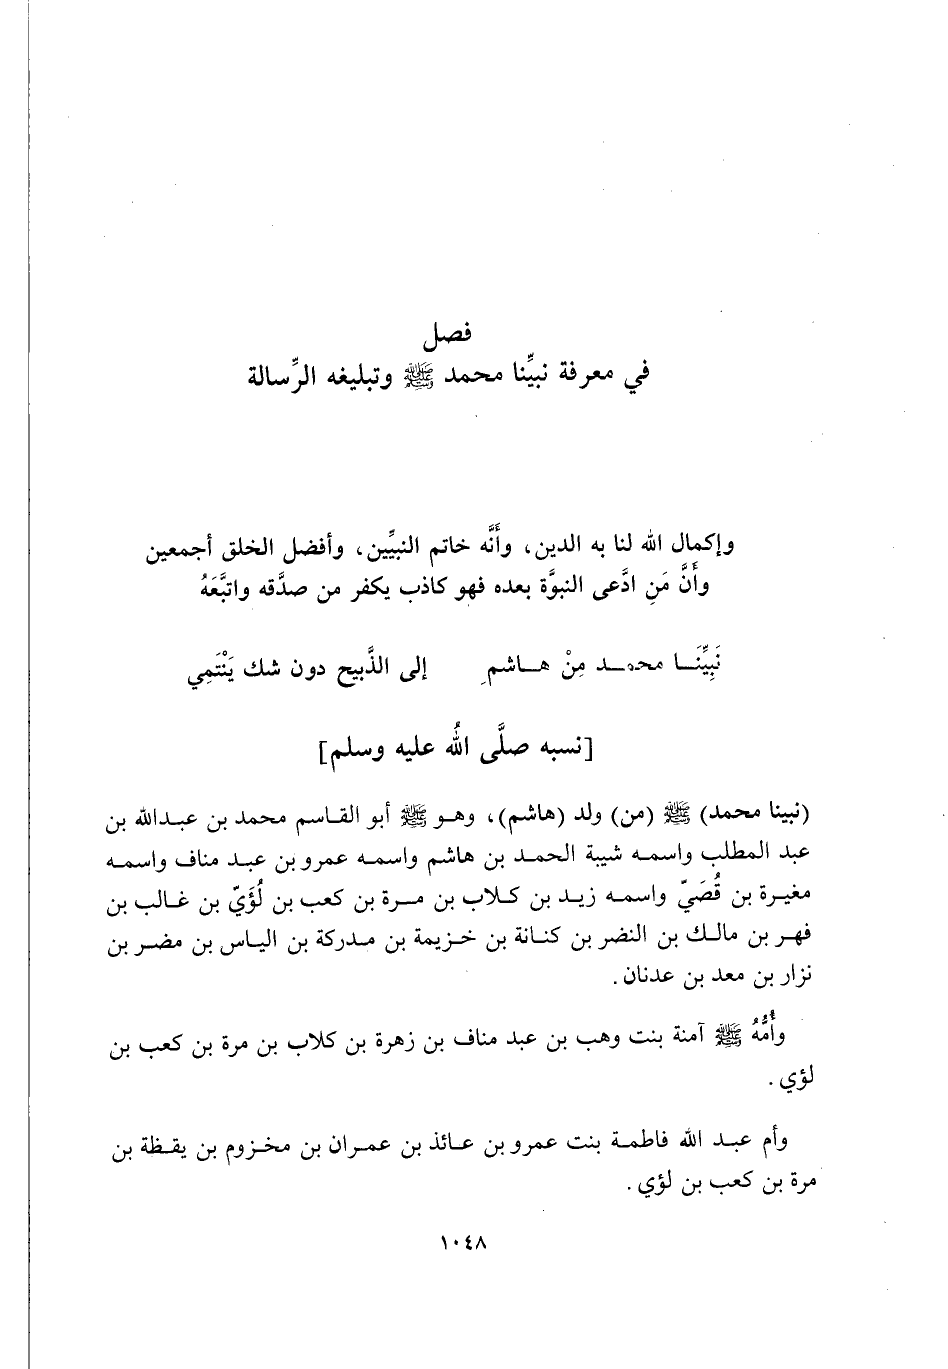 فصل
في معرفة نبيِّنا محمد ﷺ وتبليغه الرِّسالة
وإكمال الله لنا به الدين، وأَنَّه خاتم النبيِّين، وأفضل الخلق أجمعين
وأَنَّ مَنِ ادَّعى النبوَّة بعده فهو كاذب يكفر من صدَّقه واتبَّعَهُ
نَبِيِّنَـــا محمـــد مِنْ هـــاشمِ إلى الذَّبيح دون شك يَنْتَمِي
[نسبه صلَّى اللهُ عليه وسلم]
(نبينا محمد) ﷺ (من) ولد (هاشم)، وهـو ﷺ أبو القـاسم محمد بن عبـدالله بن
عبد المطلب واسمـه شيبة الحمـد بن هاشم واسمـه عمرو بن عبـد مناف واسمـه
مغيـرة بن قُصَيّ واسمـه زيـد بن كـلاب بن مـرة بن كعب بن لُؤَيّ بن غـالب بن
فهـر بن مالـك بن النضر بن كنـانة بن خـزيمة بن مـدركة بن الياس بن مضـر بن
نزار بن معد بن عدنان.
وأُمُّهُ ﷺ آمنة بنت وهب بن عبد مناف بن زهرة بن كلاب بن مرة بن كعب بن
لؤي.
وأم عبـد الله فاطمـة بنت عمرو بن عـائذ بن عمـران بن مخـزوم بن يقـظة بن
مرة بن كعب بن لؤي.
١٠٤٨